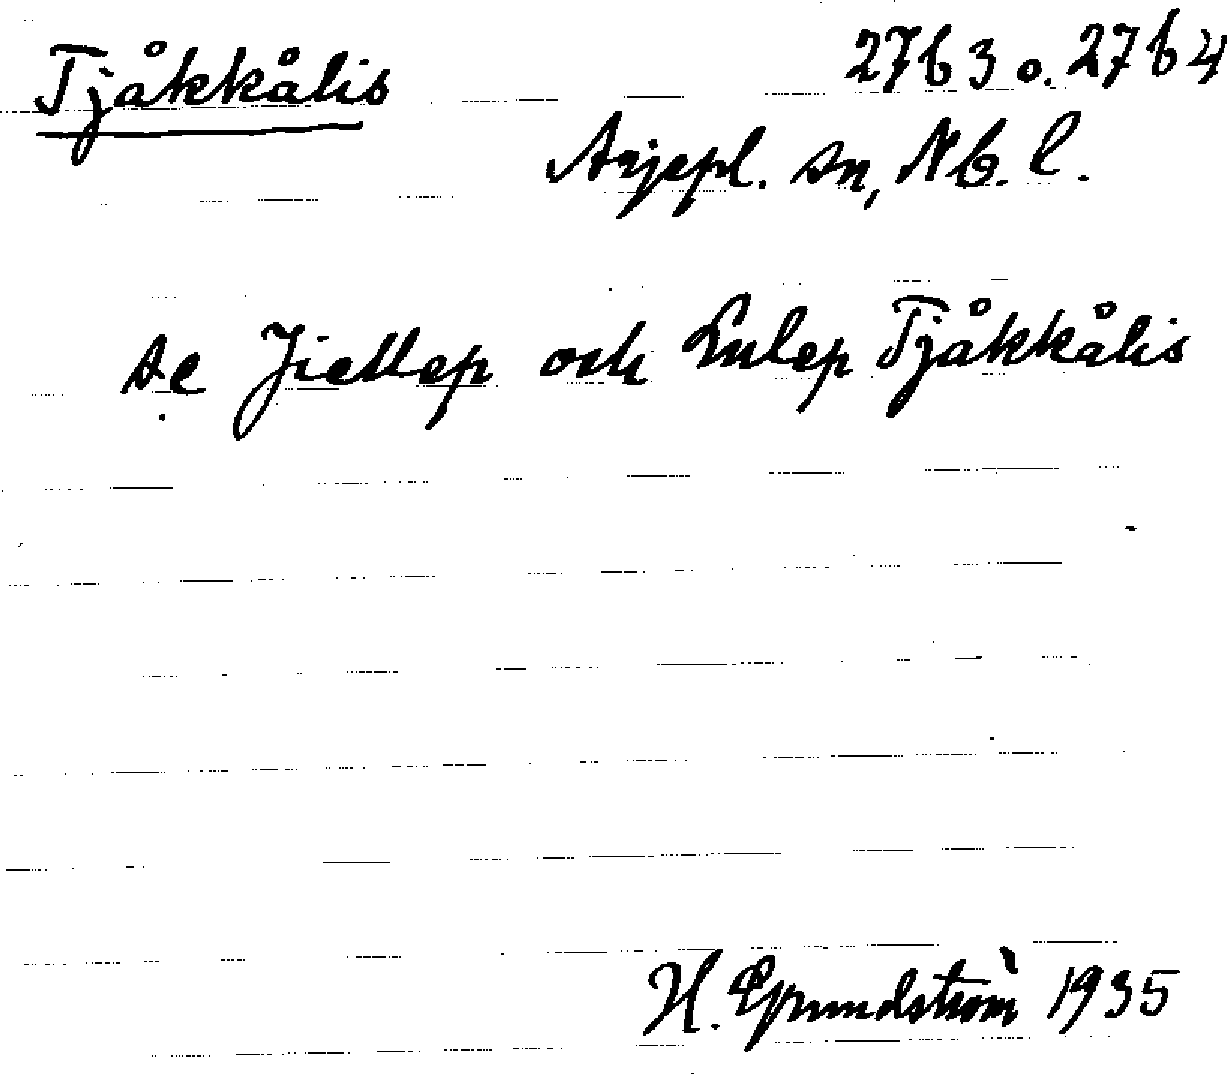 Tjåkkålis
2763 o. 2764
Arjepl. sn, Nb. l.
se Jiellep och Lulep Tjåkkålis
H. Grundström 1935